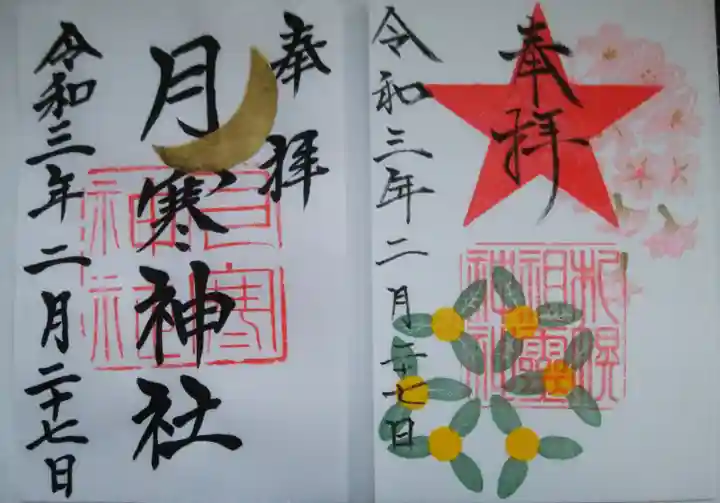 奉拝
月寒神社
令和三年二月二十七日
月寒
神社
奉拝
令和三年二月二十七日
札幌
祖霊
神社